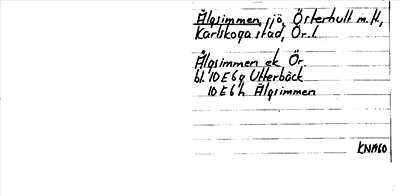 Ålgsimmen, sjö, Österhult m.fl.,
Karlskoga stad, Ör. l.
Ålgsimmen ek Ör.
bl. 10 E 6 g Utterbäck
10 E 6 h Ålgsimmen
KN1960